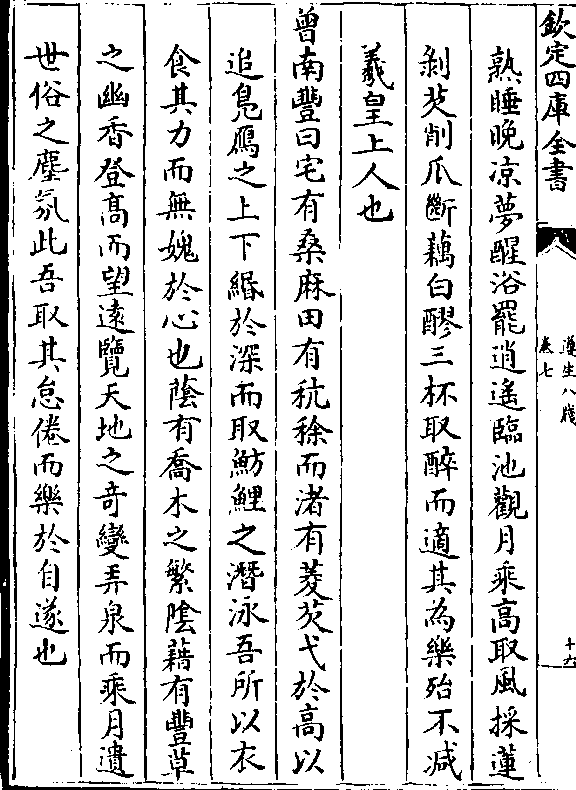 欽定四庫全書
遵生八牋
卷七
十六
熟睡晚凉夢醒浴罷逍遙臨池觀月乘高取風採蓮
剝芡削瓜斷藕白醪三杯取醉而適其為樂殆不减
羲皇上人也
曾南豐曰宅有桑麻田有秔稌而渚有菱芡弋於高以
追鳬鴈之上下緡於深而取魴鯉之潛泳吾所以衣
食其力而無媿於心也䕃有喬木之繁隂藉有豐草
之幽香登髙而望逺覽天地之竒變弄泉而乘月遺
世俗之塵氛此吾取其怠倦而樂於自遂也